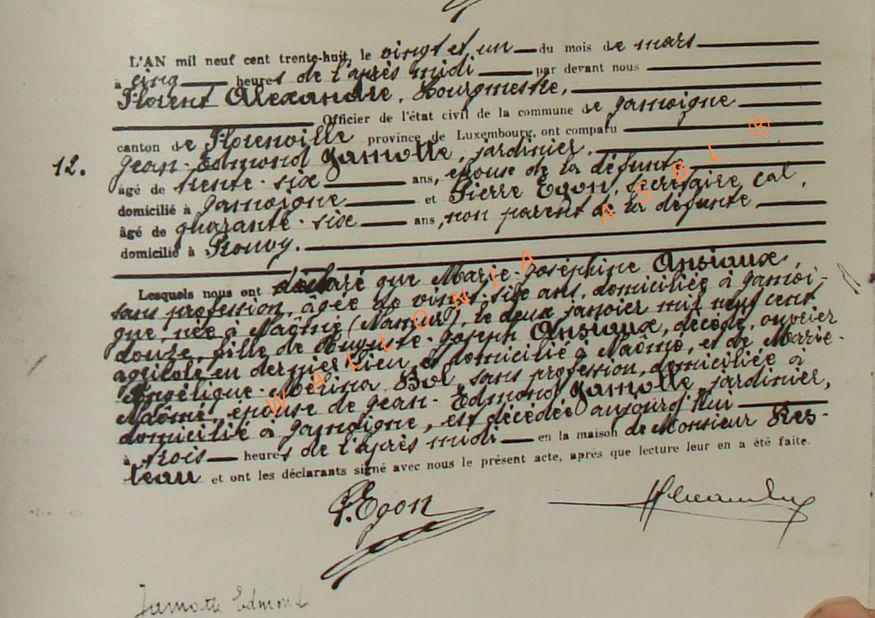 L'AN mil neuf cent trente-huit, le vingt et un du mois de mars
à cinq heures de l'après midi par devant nous
Florent Alexandre, Bourgmestre,
Officier de l'état civil de la commune de Jamoigne
canton de Florenville province de Luxembourg, ont comparu
12. Jean-Edmond Jamotte, jardinier,
âgé de trente-six ans, époux de la défunte
domicilié à Jamoigne et Pierre Egon, secrétaire cal,
âgé de quarante-six ans, non parent de la défunte
domicilié à Rouvy.
Lesquels nous ont déclaré que Marie-Joséphine Ansiaux,
sans profession, âgée de vingt-six ans, domiciliée à Jamoi-
gne, née à Naômé (Namur), le deux janvier mil neuf cent
douze, fille de Auguste-Joseph Ansiaux, décédé, ouvrier
agricole en dernier lieu et domicilié à Naômé, et de Marie-
Angélique-Mélina Bol, sans profession, domiciliée à
Naômé, épouse de Jean-Edmond Jamotte, jardinier,
domicilié à Jamoigne, est décédée aujourd'hui
à trois heures de l'après midi en la maison de Monsieur Res-
teau et ont les déclarants signé avec nous le présent acte, après que lecture leur en a été faite.
P. Egon
Jamotte Edmond
WALLONIA ASBL ®